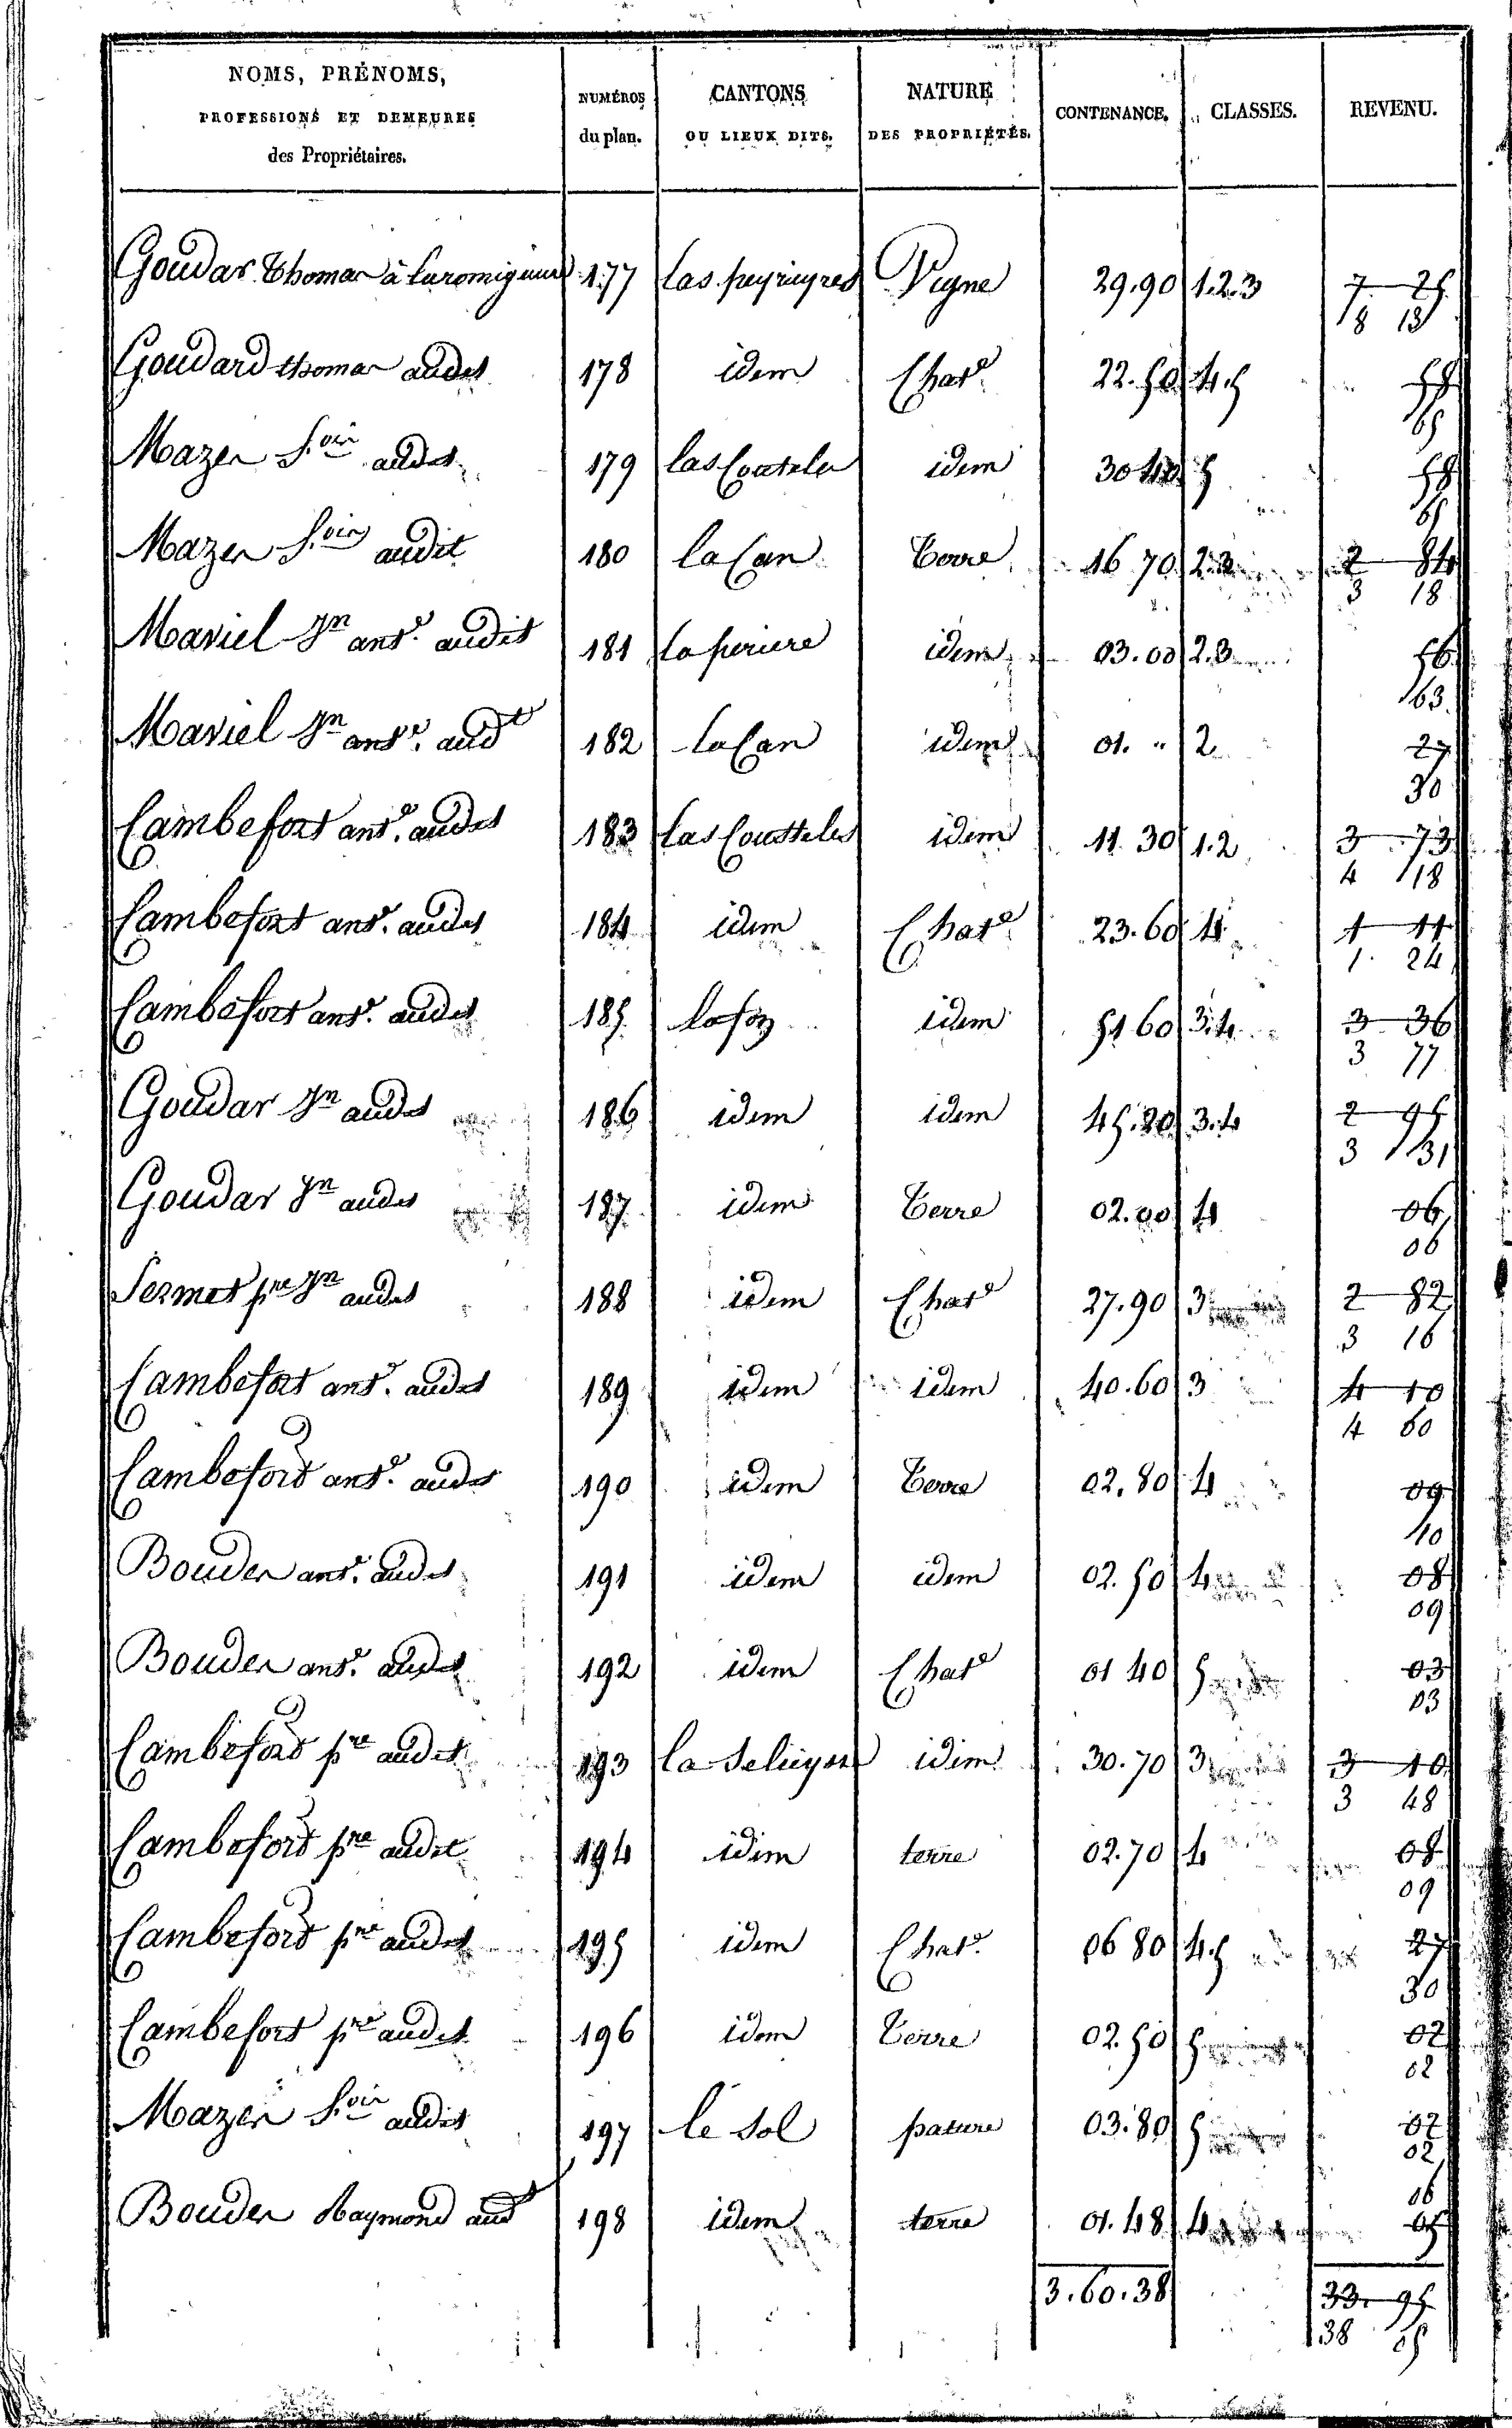 NOMS, PRÉNOMS,
PROFESSIONS ET DEMEURES
des Propriétaires.
NUMÉROS
du plan.
CANTONS
OU LIEUX DITS.
NATURE
DES PROPRIÉTÉS.
CONTENANCE.
CLASSES.
REVENU.
Goudar Thomas à 177 Vigne 29.90 1.2.3 7 25
8 13
Goudard thomas audit 178 idem Chat.e 22.50 4.5 58
65
Mazen audit 179 las Coustels idem 30 40 5 58
65
Mazen audit 180 la Can Terre 16 70 2.3 2 84
3 18
Maviel Jn ant.e audit 181 la periere idem 03.00 2.3 56
63
Maviel Jn ant.e aud.t 182 la Can idem 01. " 2 27
30
Cambefort ant.e audit 183 las Coustels idem 11 30 1.2 3 73
4 18
Cambefort ant.e audit 184 idem Chat.e 23.60 4 1 11
1. 24
Cambefort ant.e audit 185 la foz idem 51 60 3.4 3 36
3 77
Goudar Jn audit 186 idem idem 45.20 3.4 2 95
3 31
Goudar Jn audit 187 idem Terre 02.00 4 06
06
Sermet pre Jn audit 188 idem Chat.e 27.90 3 2 82
3 16
Cambefort ant.e audit 189 idem idem 40.60 3 4 10
4 60
Cambeford ant.e audit 190 idem Terre 02.80 4 09
10
Bouden ant.e audit 191 idem idem 02.50 4 08
09
Bouden ant.e audit 192 idem Chat.e 01 40 5 03
03
Cambeford pre audit 193 la idem 30.70 3 3 10
3 48
Cambeford pre audit 194 idem terre 02.70 4 08
09
Cambeford pre audit 195 idem Chat.e 06 80 4.5 27
30
Cambefort pre audit 196 idem Terre 02.50 5 02
02
Mazen audit 197 le sol pature 03.80 5 02
02
06
Bouden Raymond aud.t 198 idem terre 01.48 4 05
3.60.38 33. 95
38 05